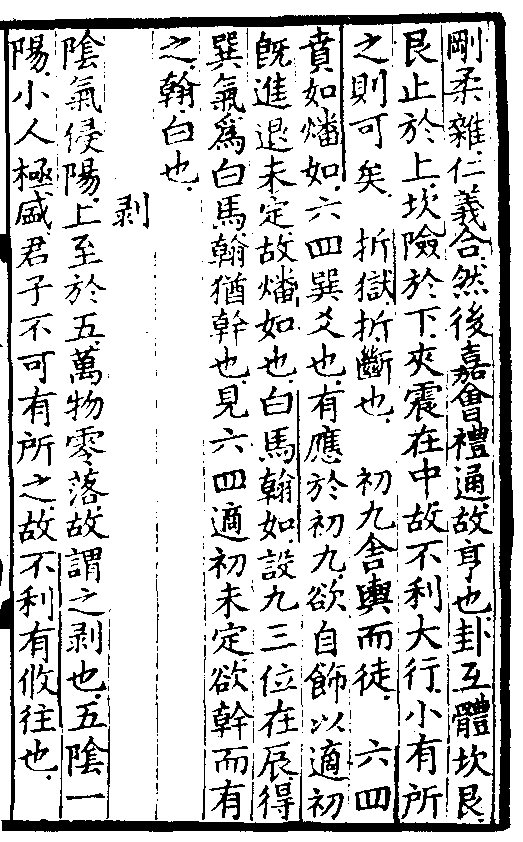 剛柔雜仁義合然後嘉會禮通故亨也卦互體坎艮
艮止於上坎險於下夾震在中故不利大行小有所
之則可矣　折獄折斷也　初九舍輿而徒　六四
賁如燔如六四巽爻也有應於初九欲自飾以適初
既進退未定故燔如也白馬翰如設九三位在辰得
巽氣為白馬翰猶幹也見六四適初未定欲幹而有
之翰白也
剥
陰氣侵陽上至於五萬物零落故謂之剥也五陰一
陽小人極盛君子不可有所之故不利有攸往也